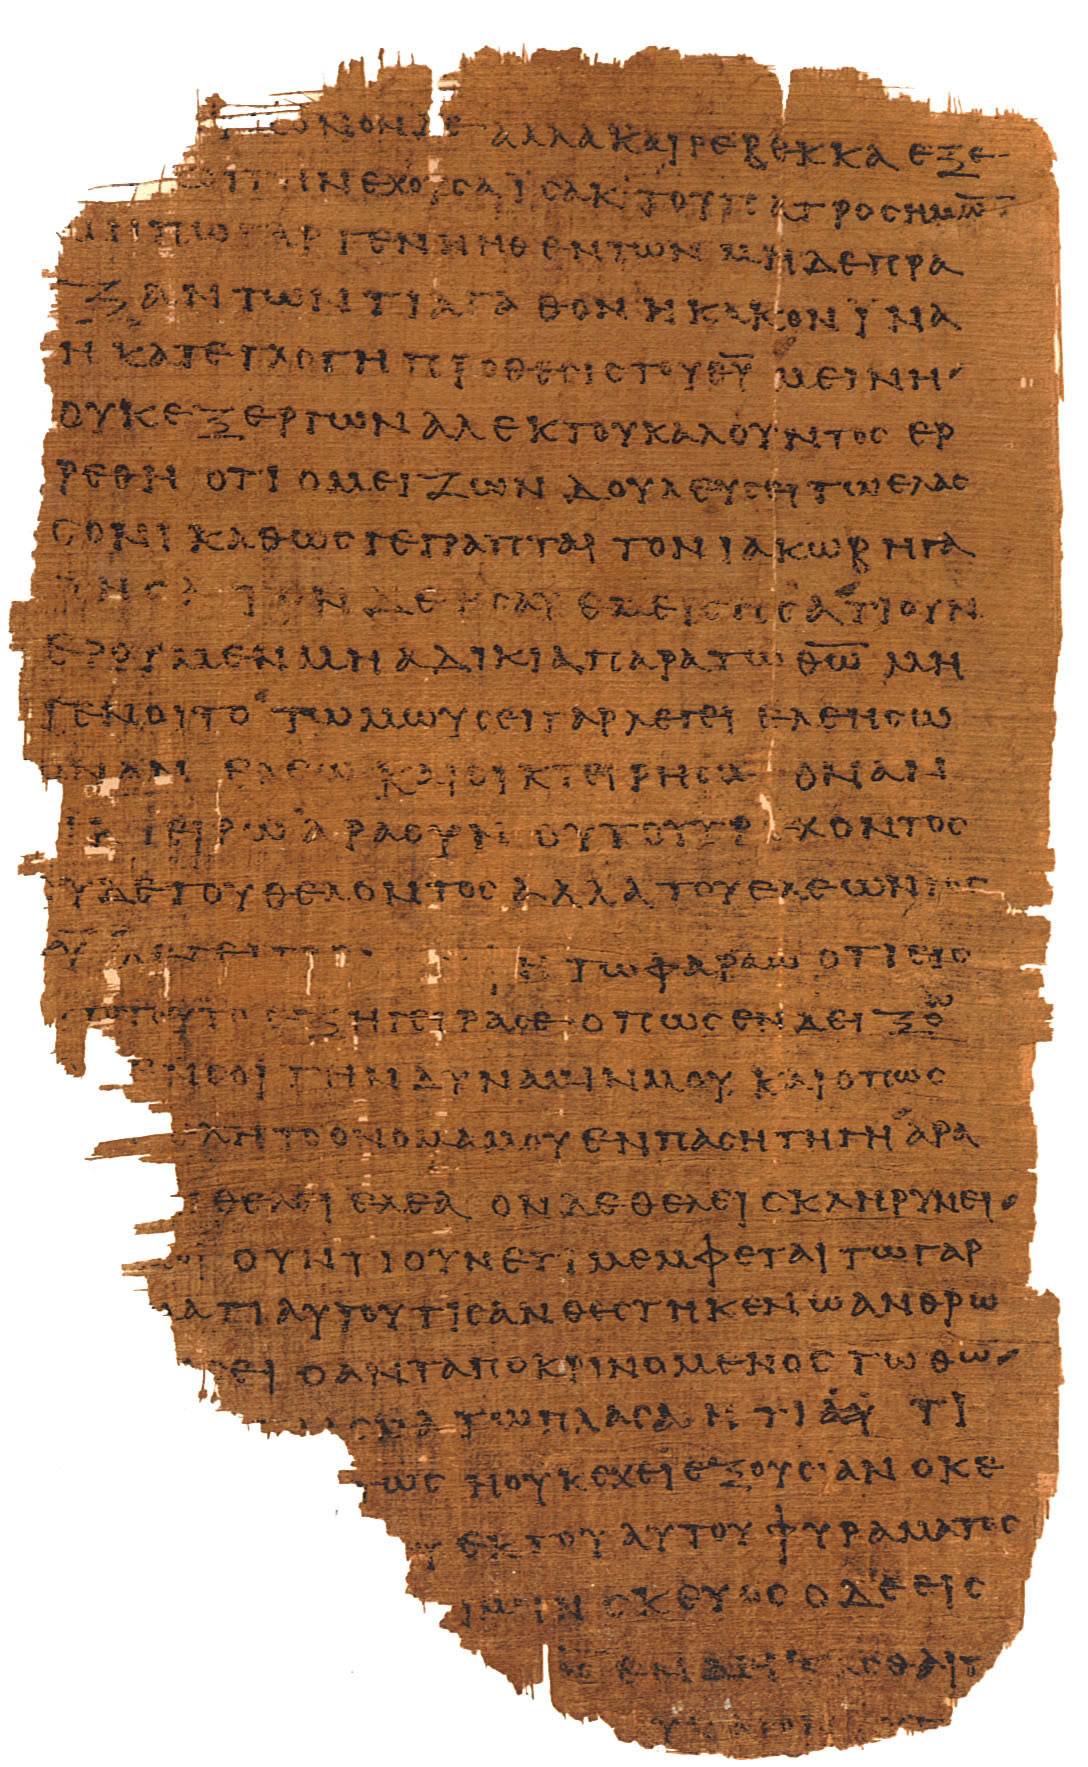 ΜΟΝΟΝΔΕ ΑΛΛΑΚΑΙΡΕΒΕΚΚΑΕΞΕ
ΕΧΟΥϹΑΪϹΑΚ ΤΟΥΠΑΤΡΟϹΗΜΩ̅
ΜΗΠΩΓΑΡΓΕΝΝΗΘΕΝΤΩΝΜΗΔΕΠΡΑ
ΞΑΝΤΩΝΤΙΑΓΑΘΟΝΗΚΑΚΟΝΪΝΑ
ΗΚΑΤΕΓΛΟΓΗΠΡΟΘΕϹΙϹΤΟΥΘ̅Υ̅ΜΕΙΝΗ
ΟΥΚΕΞΕΡΓΩΝΑΛΕΚΤΟΥΚΑΛΟΥΝΤΟϹΕΡ
ΡΕΘΗ ΟΤΙΟΜΕΙΖΩΝΔΟΥΛΕΥϹΕΙΤΩΕΛΑϹ
ϹΟΝΙΚΑΘΩϹΓΕΓΡΑΠΤΑΙ ΤΟΝΙΑΚΩΒΗΓΑ
ΠΗϹΑ ΤΟΝΔΕΗϹΑΥΕΜΕΙϹΗϹΑ ΤΙΟΥΝ
ΕΡΟΥΜΕΝΜΗΑΔΙΚΙΑΠΑΡΑΤΩΘ̅Ω̅ ΜΗ
ΓΕΝΟΙΤΟ ΤΩΜΩΥϹΕΙΓΑΡΛΕΓΕΙ ΕΛΕΗϹΩ
ΟΝΑΝ ΕΛΕΩ ΚΑΙΟΙΚΤΕΙΡΗϹΩ ΟΝΑΝ
ΤΕΙΡΩ ΑΡΑΟΥΝ ΟΥΤΟΥΤΡΕΧΟΝΤΟϹ
ΟΥΔΕΤΟΥΘΕΛΟΝΤΟϹΑΛΛΑΤΟΥΕΛΕΩΝΤΟϹ
ΤΩΦΑΡΑΩ ΟΤΙΕΙϹ
ΤΟΥΤΟΕΞΗΓΕΙΡΑϹΕ ΟΠΩϹΕΝΔΕΙΞΟ
ϹΟΙΤΗΝΔΥΝΑΜΙΝΜΟΥ ΚΑΙΟΠΩϹ
ΤΟΟΝΟΜΑΜΟΥΕΝΠΑϹΗΤΗΓΗ ΑΡΑ
ΘΕΛΕΙΕΛΕΑ ΟΝΔΕΘΕΛΕΙϹΚΛΗΡΥΝΕΙ
ΟΥΝΤΙΟΥΝΕΤΙΜΕΜΦΕΤΑΙΤΩΓΑΡ
ΜΑΤΙΑΥΤΟΥΤΙϹΑΝΘΕϹΤΗΚΕΝΩΑΝΘΡΩ
ΕΙ ΟΑΝΤΑΠΟΚΡΙΝΟΜΕΝΟϹΤΩΘ̅Ω̅
ϹΜΑΤΩΠΛΑϹΑΝΤΙ ΤΙ
ΩϹ ΗΟΥΚΕΧΕΙΕΞΟΥϹΙΑΝΟΚΕ
ΕΚΤΟΥΑΥΤΟΥΦΥΡΑΜΑΤΟϹ
ΜΗΝϹΚΕΥΟϹΟΔΕΕΙϹ
ϹΘΑΙΤ